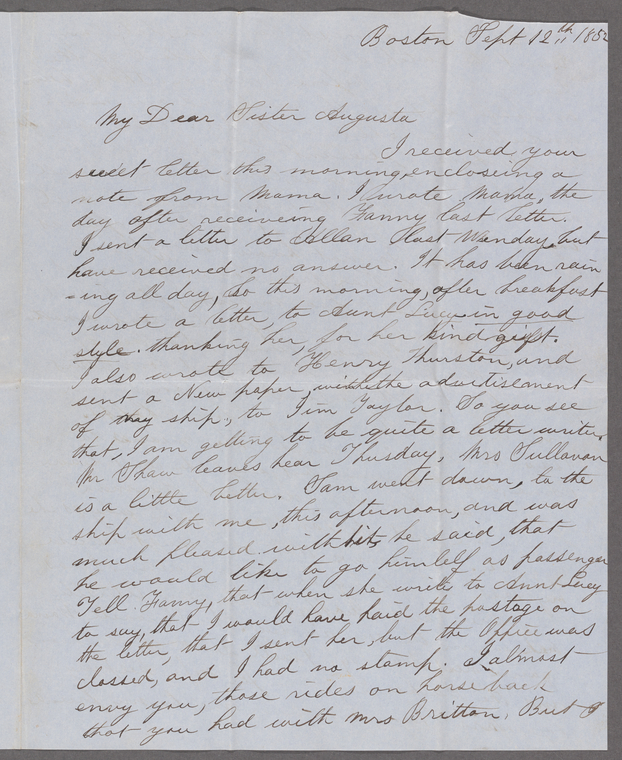 Boston Sept 12th 185
My Dear Sister Augusta
I received your
sweet letter this morning, encloseing a
note from Mama. I wrote Mama, the
day after receiveing Fanny last letter.
I sent a letter to Allan last Wenday, but
have received no answer. It has been rain
-ing all day, So this morning, after breakfast
I wrote a letter, to Aunt Lucy in good
style. thanking her, for her kind gift.
I also wrote to Henry Thurston, and
sent a New paper, with the advertisement
of my ship, to Jim Taylor. So you see
that, I am getting to be quite a letter writer.
Mr Shaw leaves hear Thusday, Mrs Sullavan
is a little better. Sam went down, to the
ship with me, this afternoon, and was
much pleased with it, he said, that
he would like to go himself as passenger
Tell Fanny, that when she write to Aunt Lucy
to say, that I would have paid the postage on
the letter, that I sent her, but the Office was
clossed, and I had no stamp. I almost
envy you, those rides on horse back
that you had with Mrs Britton, But I